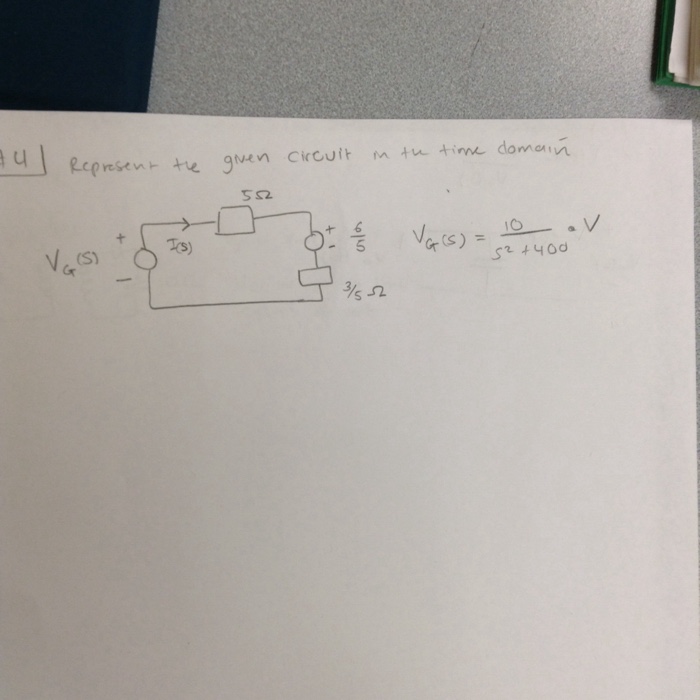 #4 Represent the given circuit in the time domain
5Ω
+
I(s)
VG(s)
-
+
-
6/5
VG(s) = 10/(s² + 400) • V
3/5 Ω